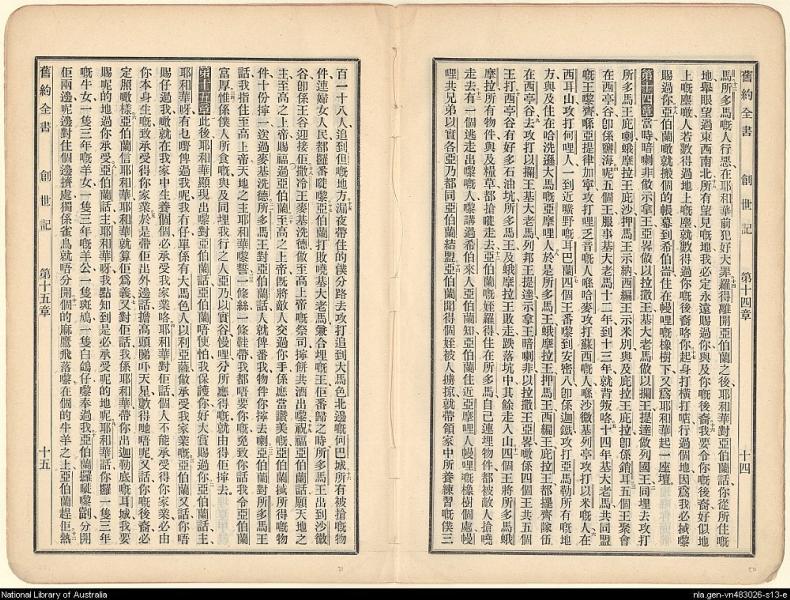 舊約全書 創世記 第十四章 十四
馬所多馬嘅人行惡在耶和華前犯好大罪羅得離開亞伯蘭之後耶和華對亞伯蘭話你從所住嘅
地舉眼望過東西南北所有望見嘅地我必定永遠賜過你與及你嘅後裔我要令你嘅後裔好似地
上嘅塵噉人若數得過地上嘅塵就數得過你嘅後裔咯你起身打橫打㨂行過個地因爲我必㨢嚟
賜過你亞伯蘭噉就搬個的帳幕到希伯崙住在幔哩嘅橡樹下又爲耶和華起一座壇
第十四章當時暗喇非做示拿王亞畧做以拉撒王基大老馬做以攔王提達做列國王同埋去攻打
所多馬王庇喇蛾摩拉王庇沙押馬王示納西編王示米別與及庇拉王庇拉卽係銷耳五個王聚會
在西亭谷卽係鹽海呢五個王服事基大老馬十二年到十三年就背叛咯十四年基大老馬共同盟
嘅王嚟齊喺亞提律加寧攻打哩乏音嘅人喺哈麥攻打蘇西嘅人喺沙微基列亭攻打以米嘅人在
西耳山攻打何哩人一到近曠野嘅耳巴蘭四個王番嚟到安密八卽係迦鐵攻打亞馬勒所有嘅地
方與及住在哈洗遜大馬嘅亞摩哩人於是所多馬王蛾摩拉王押馬王西編王庇拉王都擺齊隊伍
在西亭谷去攻打以攔王基大老馬列邦王提達示拿王暗喇非以拉撒王亞畧噉係四個王共五個
王打西亭谷有好多石油坑所多馬王及蛾摩拉王走跌落坑中其餘走入山四個王將所多馬蛾
摩拉所有物件與及糧草都搶嚟走去亞伯蘭嘅姪羅得住在所多馬自己連埋物件都被敵人搶嘵
走去有一個逃走出嚟嘅人嚟講過希伯來人亞伯蘭知亞伯蘭住近亞摩哩人幔哩嘅橡樹個處幔
哩共兄弟以實各及亞乃都同亞伯蘭結盟亞伯蘭聞得個姪被人擄掠就帶領家中所養練習嘅僕三
百一十八人追到但嘅地方漏夜帶住的僕分路去攻打追到大馬色北邊嘅何巴城所有被搶嘅物
件連婦女人民都攞番嚟嚟亞伯蘭打敗嘵基大老馬兼合埋嘅王佢番歸之時所多馬王出到沙微
谷卽係王谷迎接佢撒冷王麥基洗德做至高上帝嘅祭司擰餅共酒出嚟祝福亞伯蘭話願天地之
主至高之上帝賜福過亞伯蘭至高之上帝旣將敵人交過你手係應當讚美嘅亞伯蘭㨢所得嘅物
件十份擰一送過麥基洗德所多馬王對亞伯蘭話人就俾番我物件你擰去喇亞伯蘭對所多馬王
話我指住至高上帝天地之主耶和華嚟誓一條絲一條鞋帶我都唔要你嘅免致你話我令亞伯蘭
富厚惟係僕人所食嘅與及同埋我行之人亞乃以實谷幔哩分所應得嘅就由得佢擰去
第十五章此後耶和華顯現出嚟對亞伯蘭話亞伯蘭唔使怕我保護你好大賞賜過你亞伯蘭話主
耶和華呀有乜嘢俾過我呢我冇仔單係有大馬色人以利亞薩做承受我家業嘅亞伯蘭又話你唔
賜仔過我噉就在我家中生養個個必承受我家業咯耶和華對佢話個人不能承受得你家業必由
你本身生嘅致承受得你家業於是帶佢出外邊話擔高頭睇吓天星數得咃唔呢又話你嘅後裔必
定照噉樣亞伯蘭信耶和華耶和華就算佢爲義又對佢話我係耶和華帶你出迦勒底嘅耳城我要
賜呢的地過你承受亞伯蘭話主耶和華呀我點知到是必承受呢的地呢耶和華話你攞一隻三年
嘅牛女一隻三年嘅羊女一隻三年嘅羊公一隻斑鳩一隻白鴿仔嚟奉過我亞伯蘭攞嚟嚟劏分開
佢兩邊呢邊對住個邊擠處獨係雀鳥就唔分開個的麻鷹飛落嚟在個的牛羊之上亞伯蘭趕佢熱
舊約全書 創世記 第十五章 十五
National Library of Australia
nla.gen-vn483026-s13-e